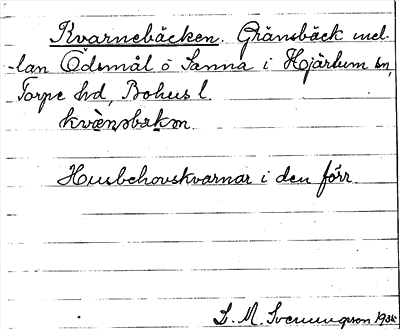 Kvarnebäcken. Gränsbäck mel-
-lan Ödsmål o Sanna i Hjärtum sn,
Torpe hd, Bohus l.
kvæ̀ṇəbækən.
Husbehovskvarnar i den förr.
L. M. Svenungson 1935